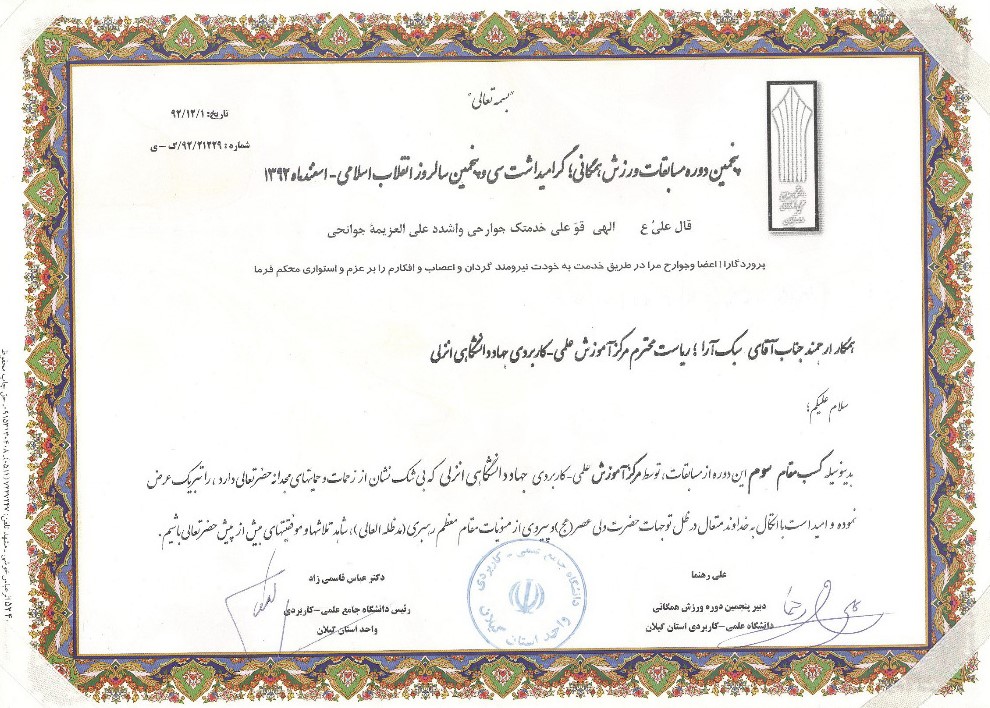 "بسمه تعالی"
تاریخ: ۹۲/۱۲/۱
شماره: ۹۲/۲۱۲۲۹/ک-ی
پنجمین دوره مسابقات ورزش همگانی؛ گرامیداشت سی و پنجمین سالروز انقلاب اسلامی - اسفندماه ۱۳۹۲
قال علیُ ع الهی قوّ علی خدمتک جوارحی واشدد علی العزیمة جوانحی
پروردگارا! اعضا وجوارح مرا در طریق خدمت به خودت نیرومند گردان و اعصاب و افکارم را بر عزم و استواری محکم فرما
همکار ارجمند جناب آقای سبک آرا؛ ریاست محترم مرکز آموزش علمی-کاربردی جهاد دانشگاهی انزلی
سلام علیکم؛
بدینوسیله کسب مقام سوم این دوره از مسابقات، توسط مرکز آموزش علمی-کاربردی جهاد دانشگاهی انزلی که بی شک نشان از زحمات و حمایتهای مجدانه حضرتعالی دارد، را تبریک عرض
نموده و امید است با اتکال به خداوند متعال در ظل توجهات حضرت ولی عصر (عج) و پیروی از منویات مقام معظم رهبری (مد ظله العالی)، شاهد تلاشها و موفقیتهای بیش از پیش حضرتعالی باشیم.
علی رهنما
دبیر پنجمین دوره ورزش همگانی
دانشگاه علمی-کاربردی استان گیلان
دکتر عباس قاسمی زاد
رئیس دانشگاه جامع علمی-کاربردی
واحد استان گیلان
دانشگاه جامع علمی - کاربردی
واحد استان گیلان